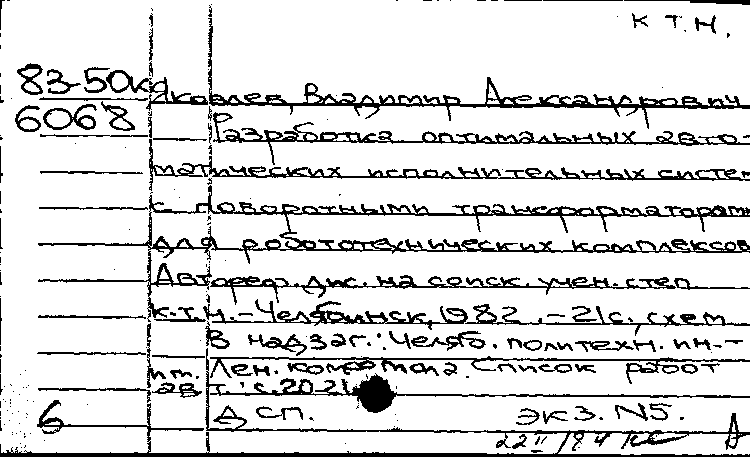 К Т.Н.
83-50кд
6068
Яковлев, Владимир Александрович
Разработка оптимальных авто-
матических исполнительных систем
с поворотными трансформаторами
для робототехнических комплексов
Автореф. дис. на соиск. учен. степ
к.т.н. - Челябинск, 1982. - 21с., схем
В надзаг.: Челяб. политехн. ин-т
им. Лен. комсомола. Список работ
авт.: с. 20-21
6 ДСП. экз. N5.
22 II /84